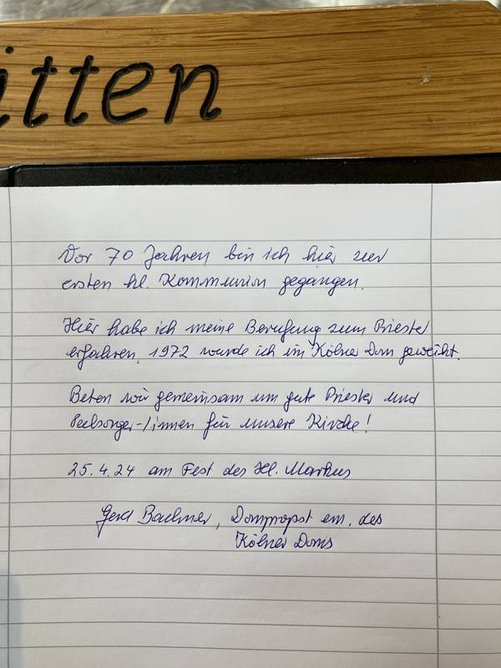 itten
Vor 70 Jahren bin ich hier zur
ersten hl. Kommunion gegangen.
Hier habe ich meine Berufung zum Priester
erfahren. 1972 wurde ich im Kölner Dom geweiht.
Beten wir gemeinsam um gute Priester und
Seelsorger-/innen für unsere Kirche!
25.4.24 am Fest des Hl. Markus
Gerd Bachner, Dompropst em. des
Kölner Doms